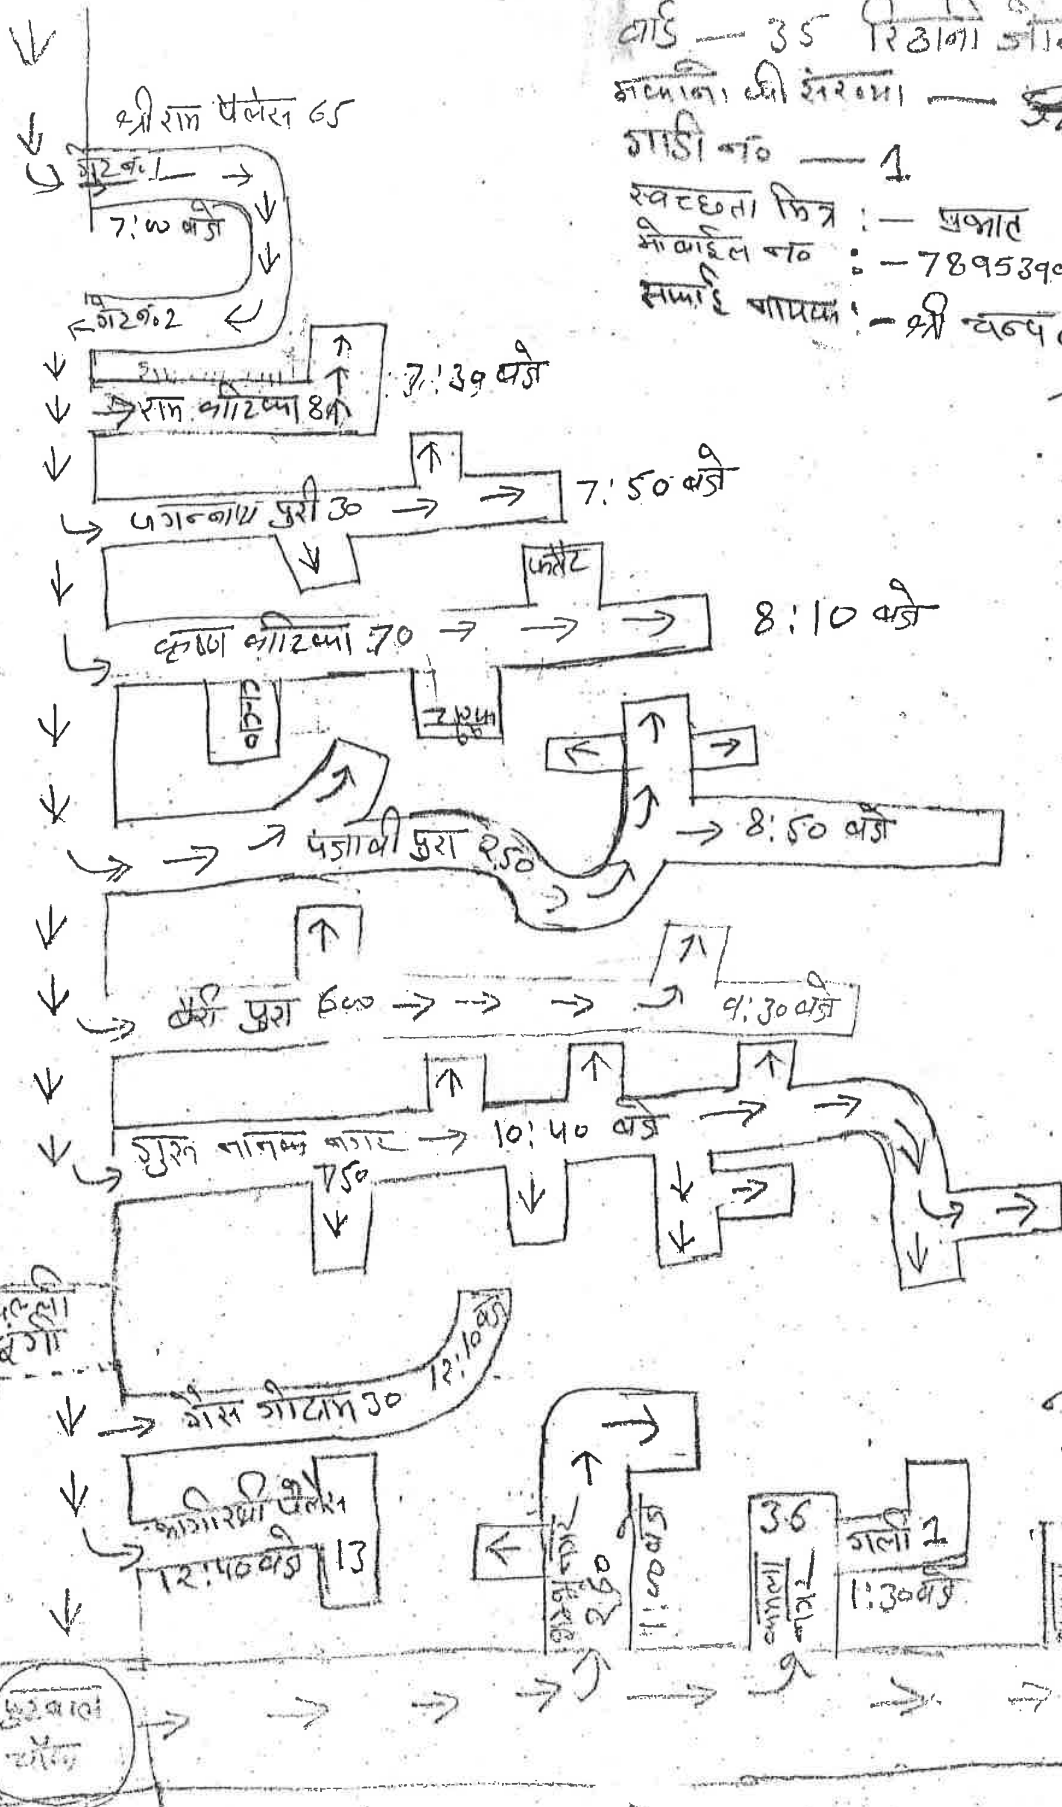 वार्ड — 35 रिठानी
मकानो की संख्या —
गाडी नं० — 1
स्वच्छता मित्र : — प्रभात
मोबाईल नं० : — 789539
सफाई नायक : — श्री
श्री राम पैलेस 65
गेट नं.1
7:00 बजे
गेट नं.2
राम वाटिका 80
7:30 बजे
जगन्नाथ पुरी 30
7:50 बजे
फ्लैट
कृष्णा वाटिका 70
8:10 बजे
पंजाबी पुरा 250
8:50 बजे
बैरी पुरा 600
9:30 बजे
गुरु नानक नगर
10:40 बजे
750
गैस गोदाम 30
12:10 बजे
भागीरथी पैलेस
12:40 बजे
13
260
1:00 बजे
36
कमला
नगर
गली 1
1:30 बजे
फुटबाल
चौक